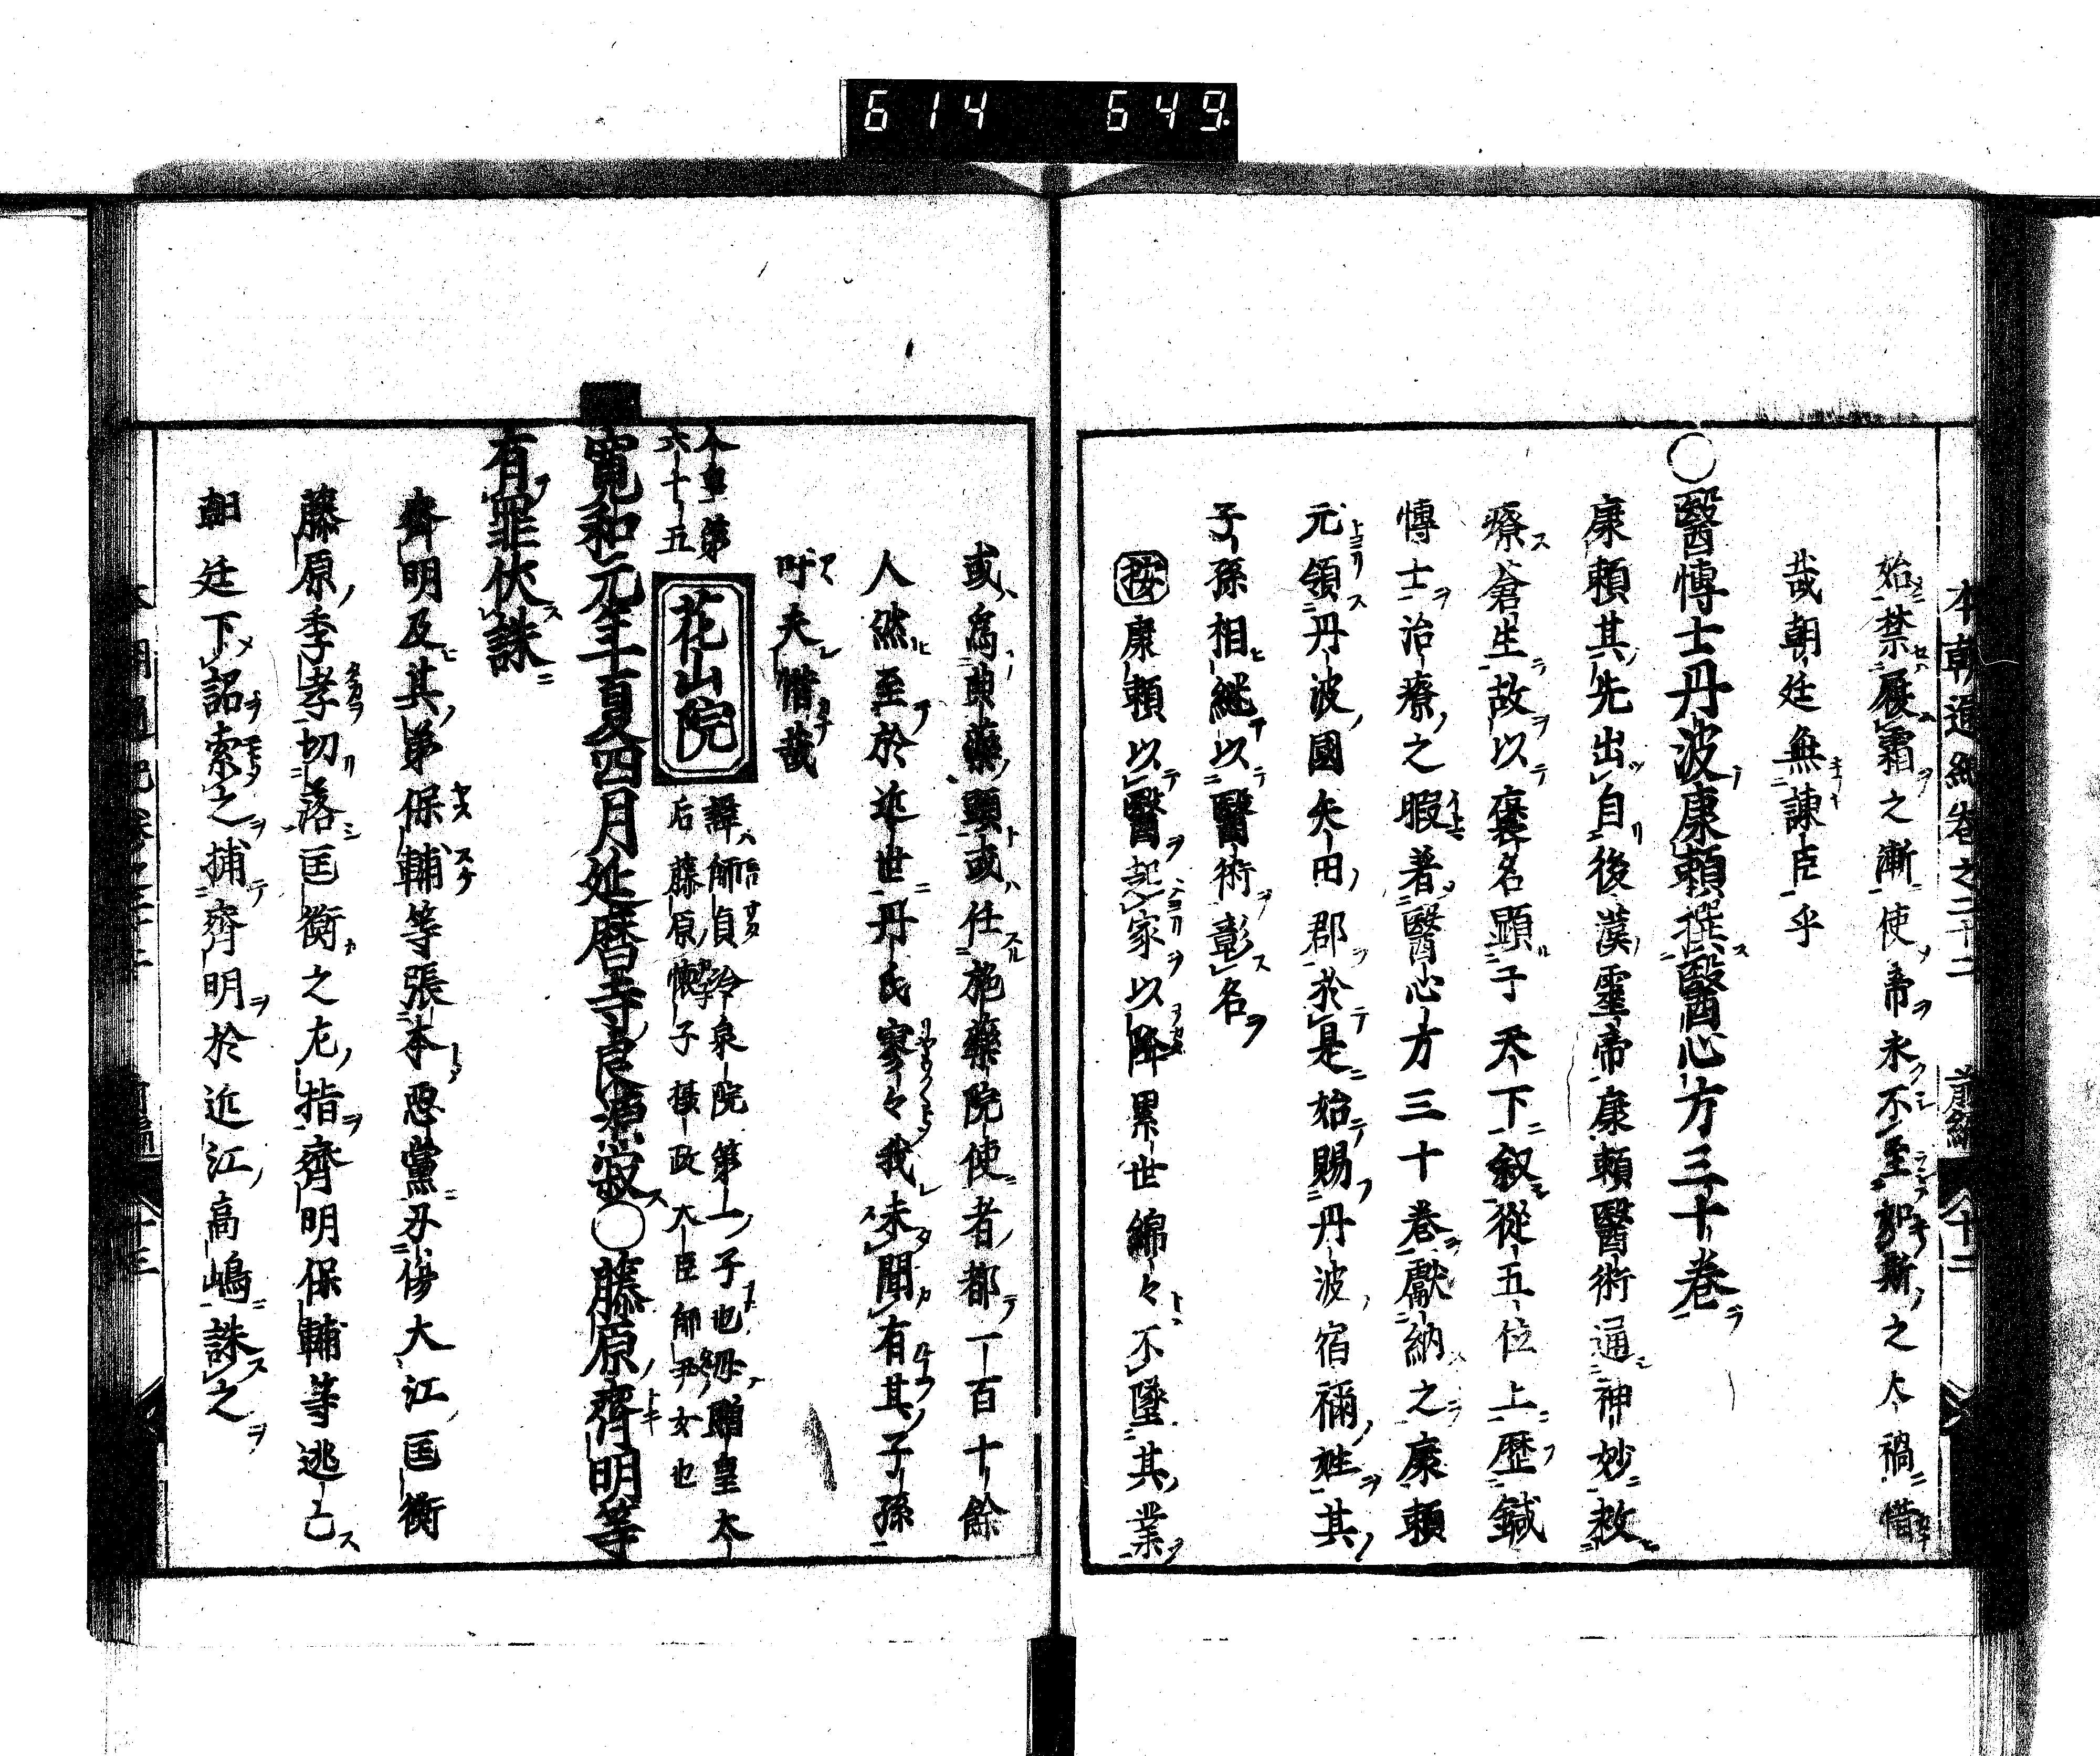 614 649.
本朝通紀卷之二十二 前編 十二
始禁履霜之漸使帝永不至如斯之大禍惜
哉朝廷無諫臣乎
○醫博士丹波康頼撰醫心方三十卷
康頼其先出自後漢靈帝康頼醫術通神妙救
療蒼生故以褒名顯于天下叙從五位上歷鍼
博士治療之暇著醫心方三十卷獻納之康頼
元領丹波國矢田郡於是始賜丹波宿禰姓其
子孫相継以醫術彰名
按康頼以醫起家以降累世綿々不墜其業
或為典藥頭或任施藥院使者都一百十餘
人然至於近世丹氏寥々我未聞有其子孫
吁夫惜哉
人皇第六十五
花山院
諱師貞冷泉院第一子也母贈皇太
后藤原懐子攝政太臣師尹女也
寛和元年夏四月延暦寺良源寂○藤原齊明等
有罪伏誅
齊明及其弟保輔等張本惡黨刃傷大江匡衡
藤原季孝切落匡衡之左指齊明保輔等逃亡
朝廷下詔索之捕齊明於近江高嶋誅之
本朝通紀卷之二十二 前編 十三